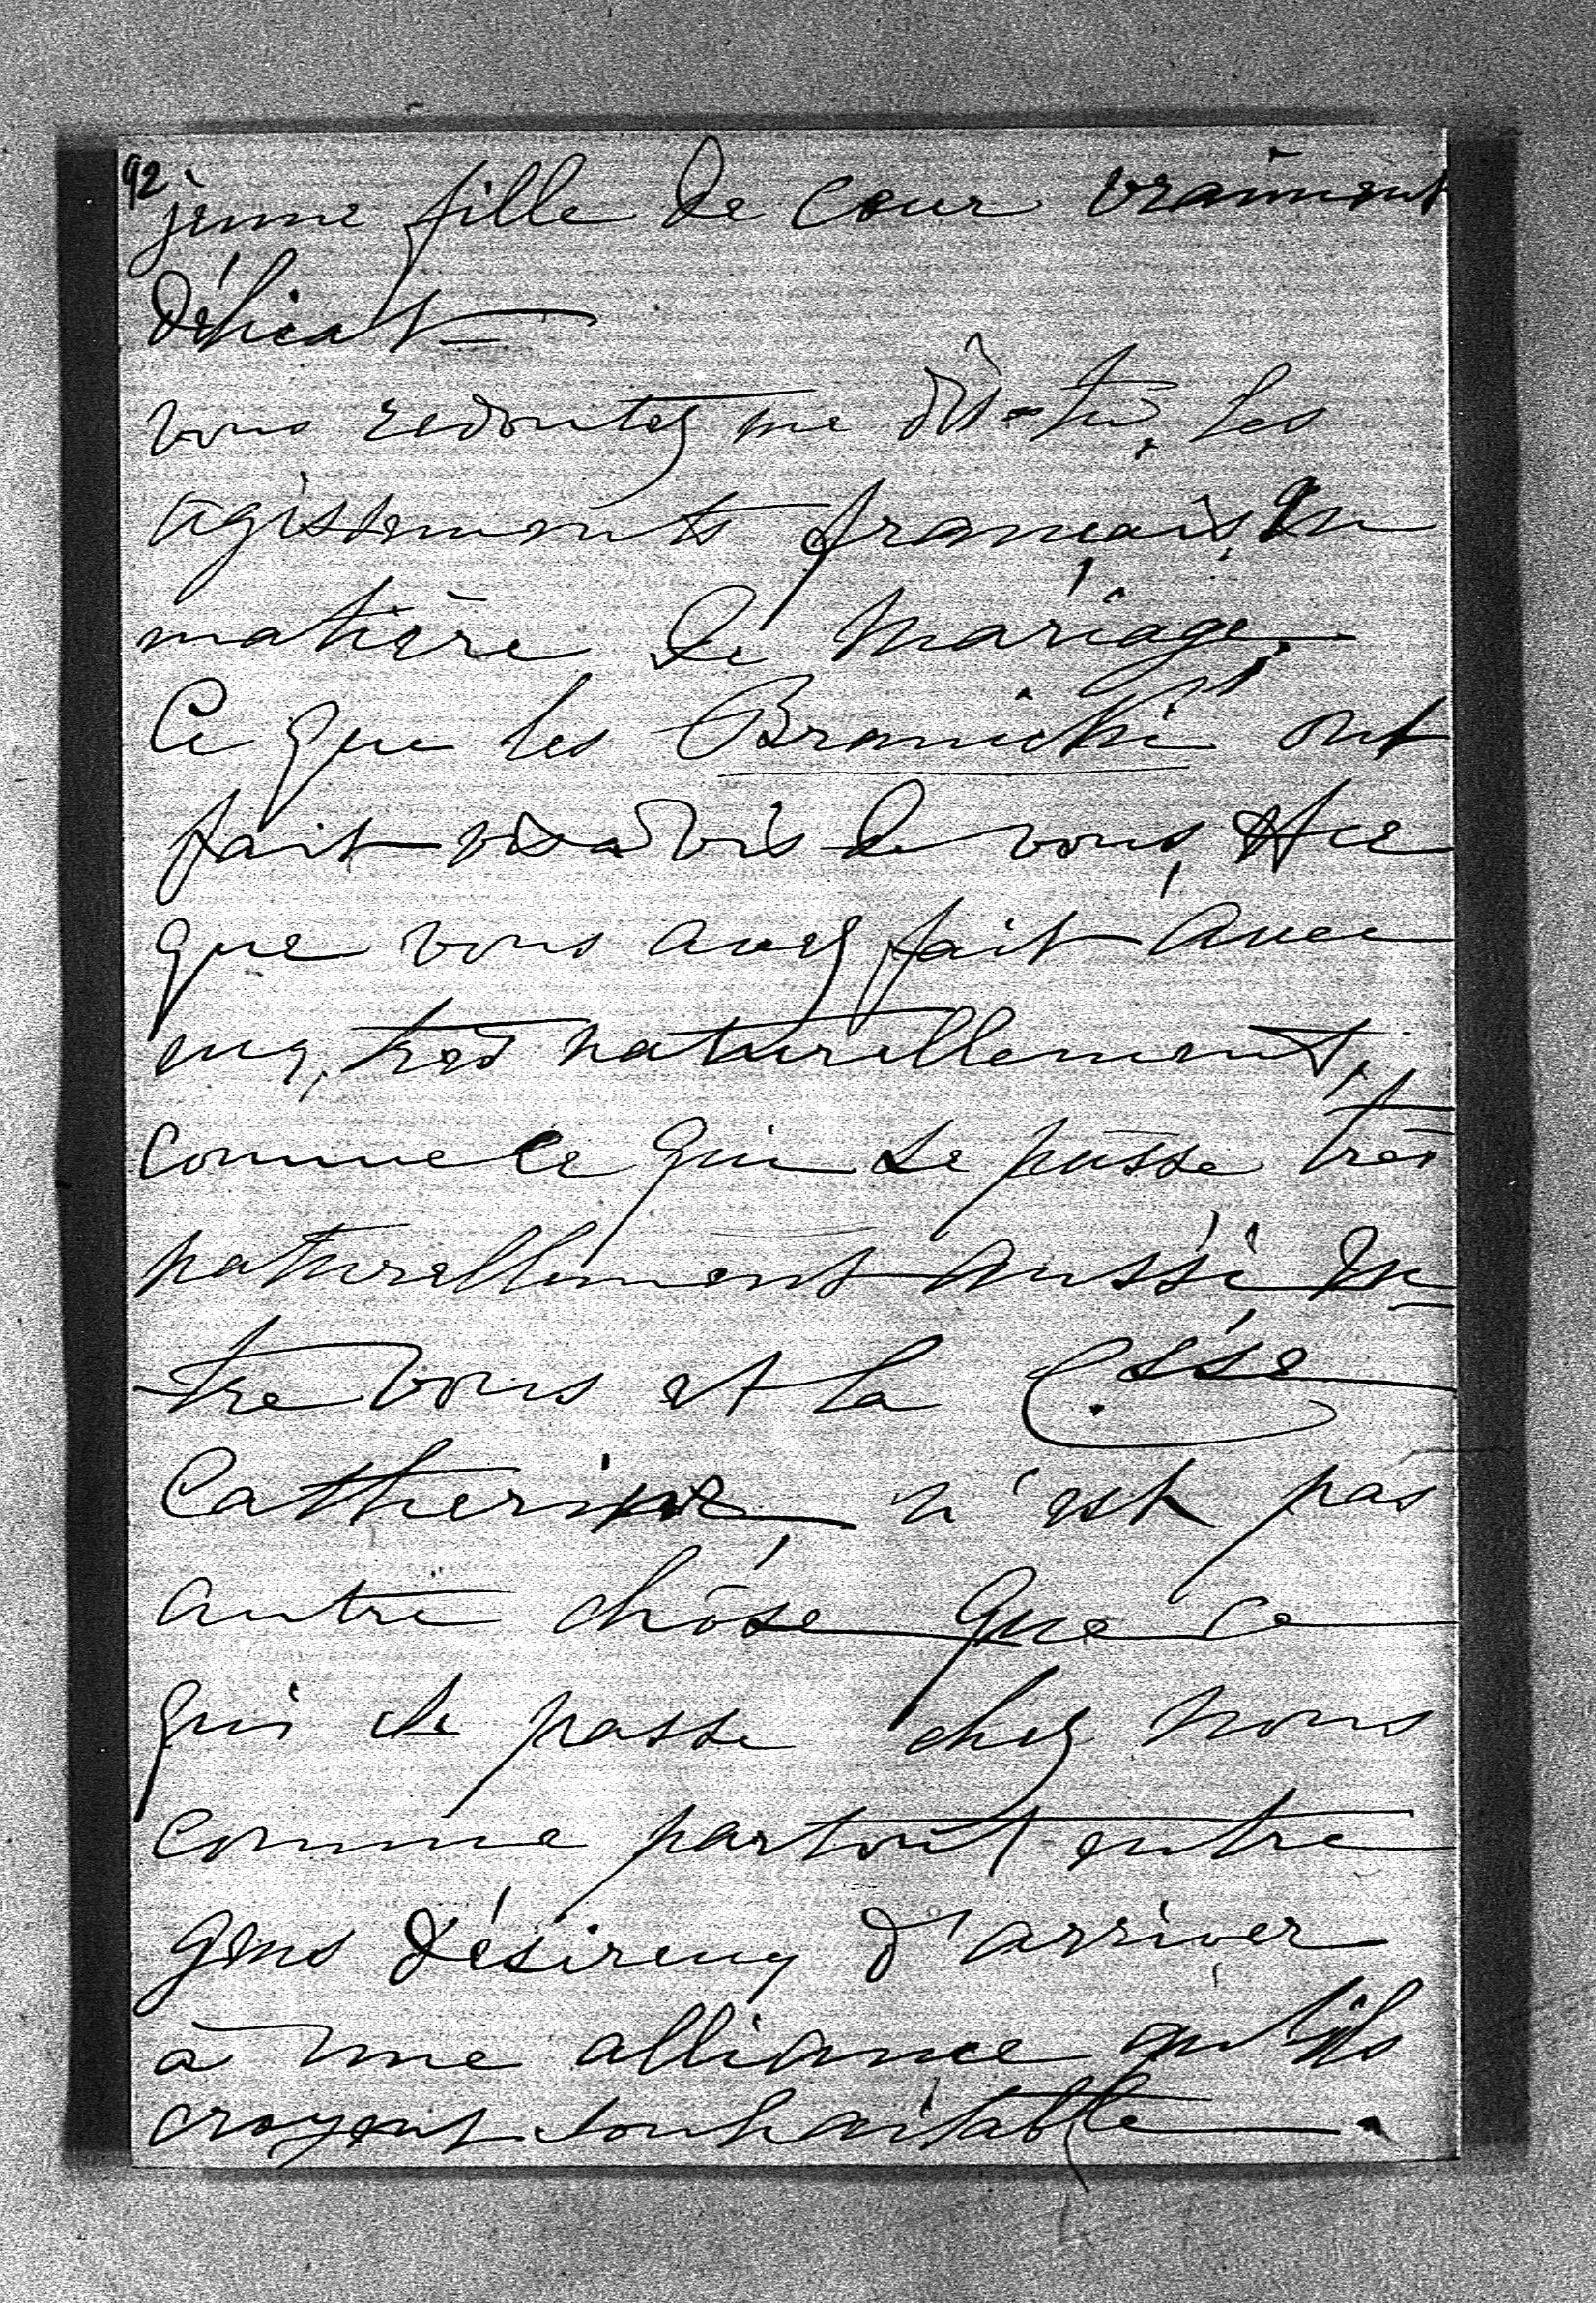 92
jeune fille de cœur vraiment
délicat —
vous redoutez me dis-tu, les
agissements français, en
matière de mariage.
Ce que les Branicki ont
fait vis à vis de vous, et ce
que vous avez fait avec
eux, très naturellement,
comme ce qui se passe très
naturellement aussi en-
tre vous et la Csse
Catherine, n'est pas
autre chose que ce
qui se passe chez nous
comme partout entre
gens désireux d'arriver
à une alliance qu'ils
croyent souhaitable.